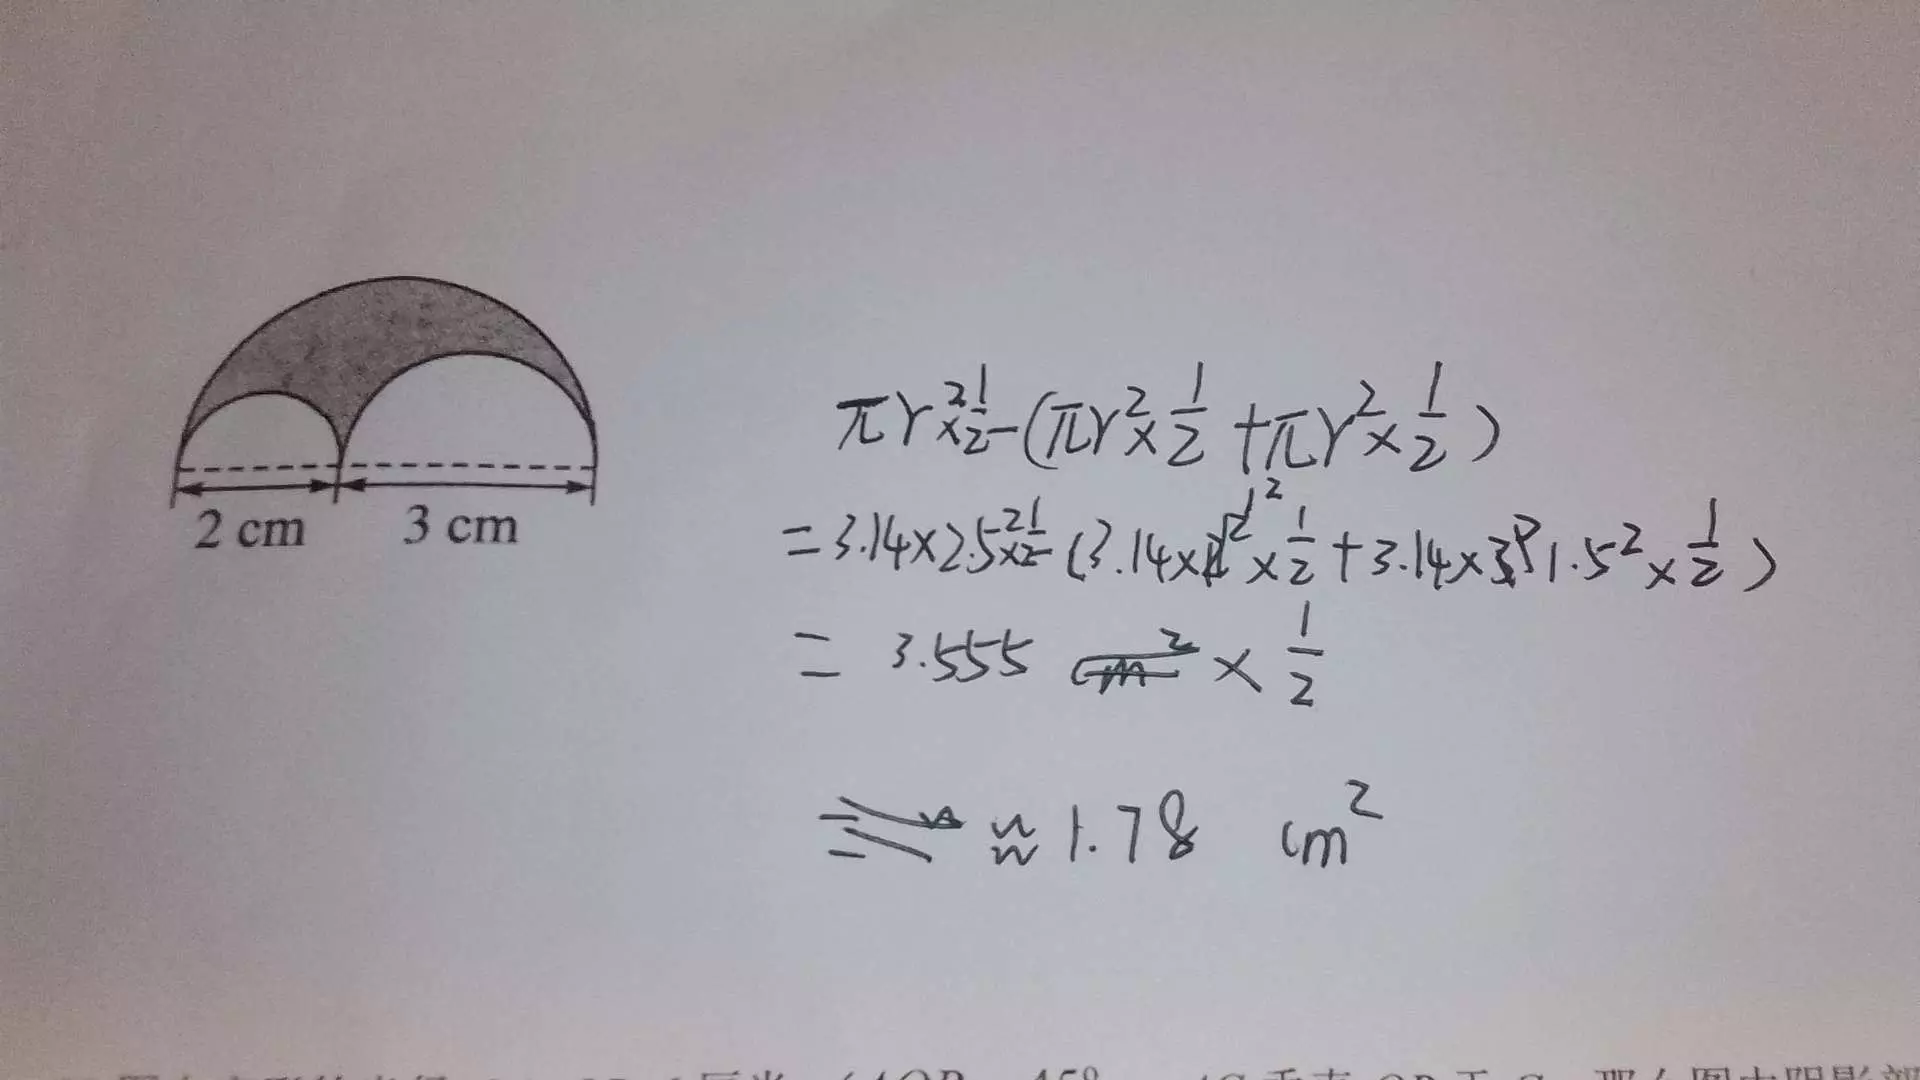 2 cm 3 cm
πr²×1/2-(πr²×1/2+πr²×1/2)
=3.14×2.5²×1/2-(3.14×1²×1/2+3.14×1.5²×1/2)
= 3.555 cm² ×1/2
≈1.78 cm²